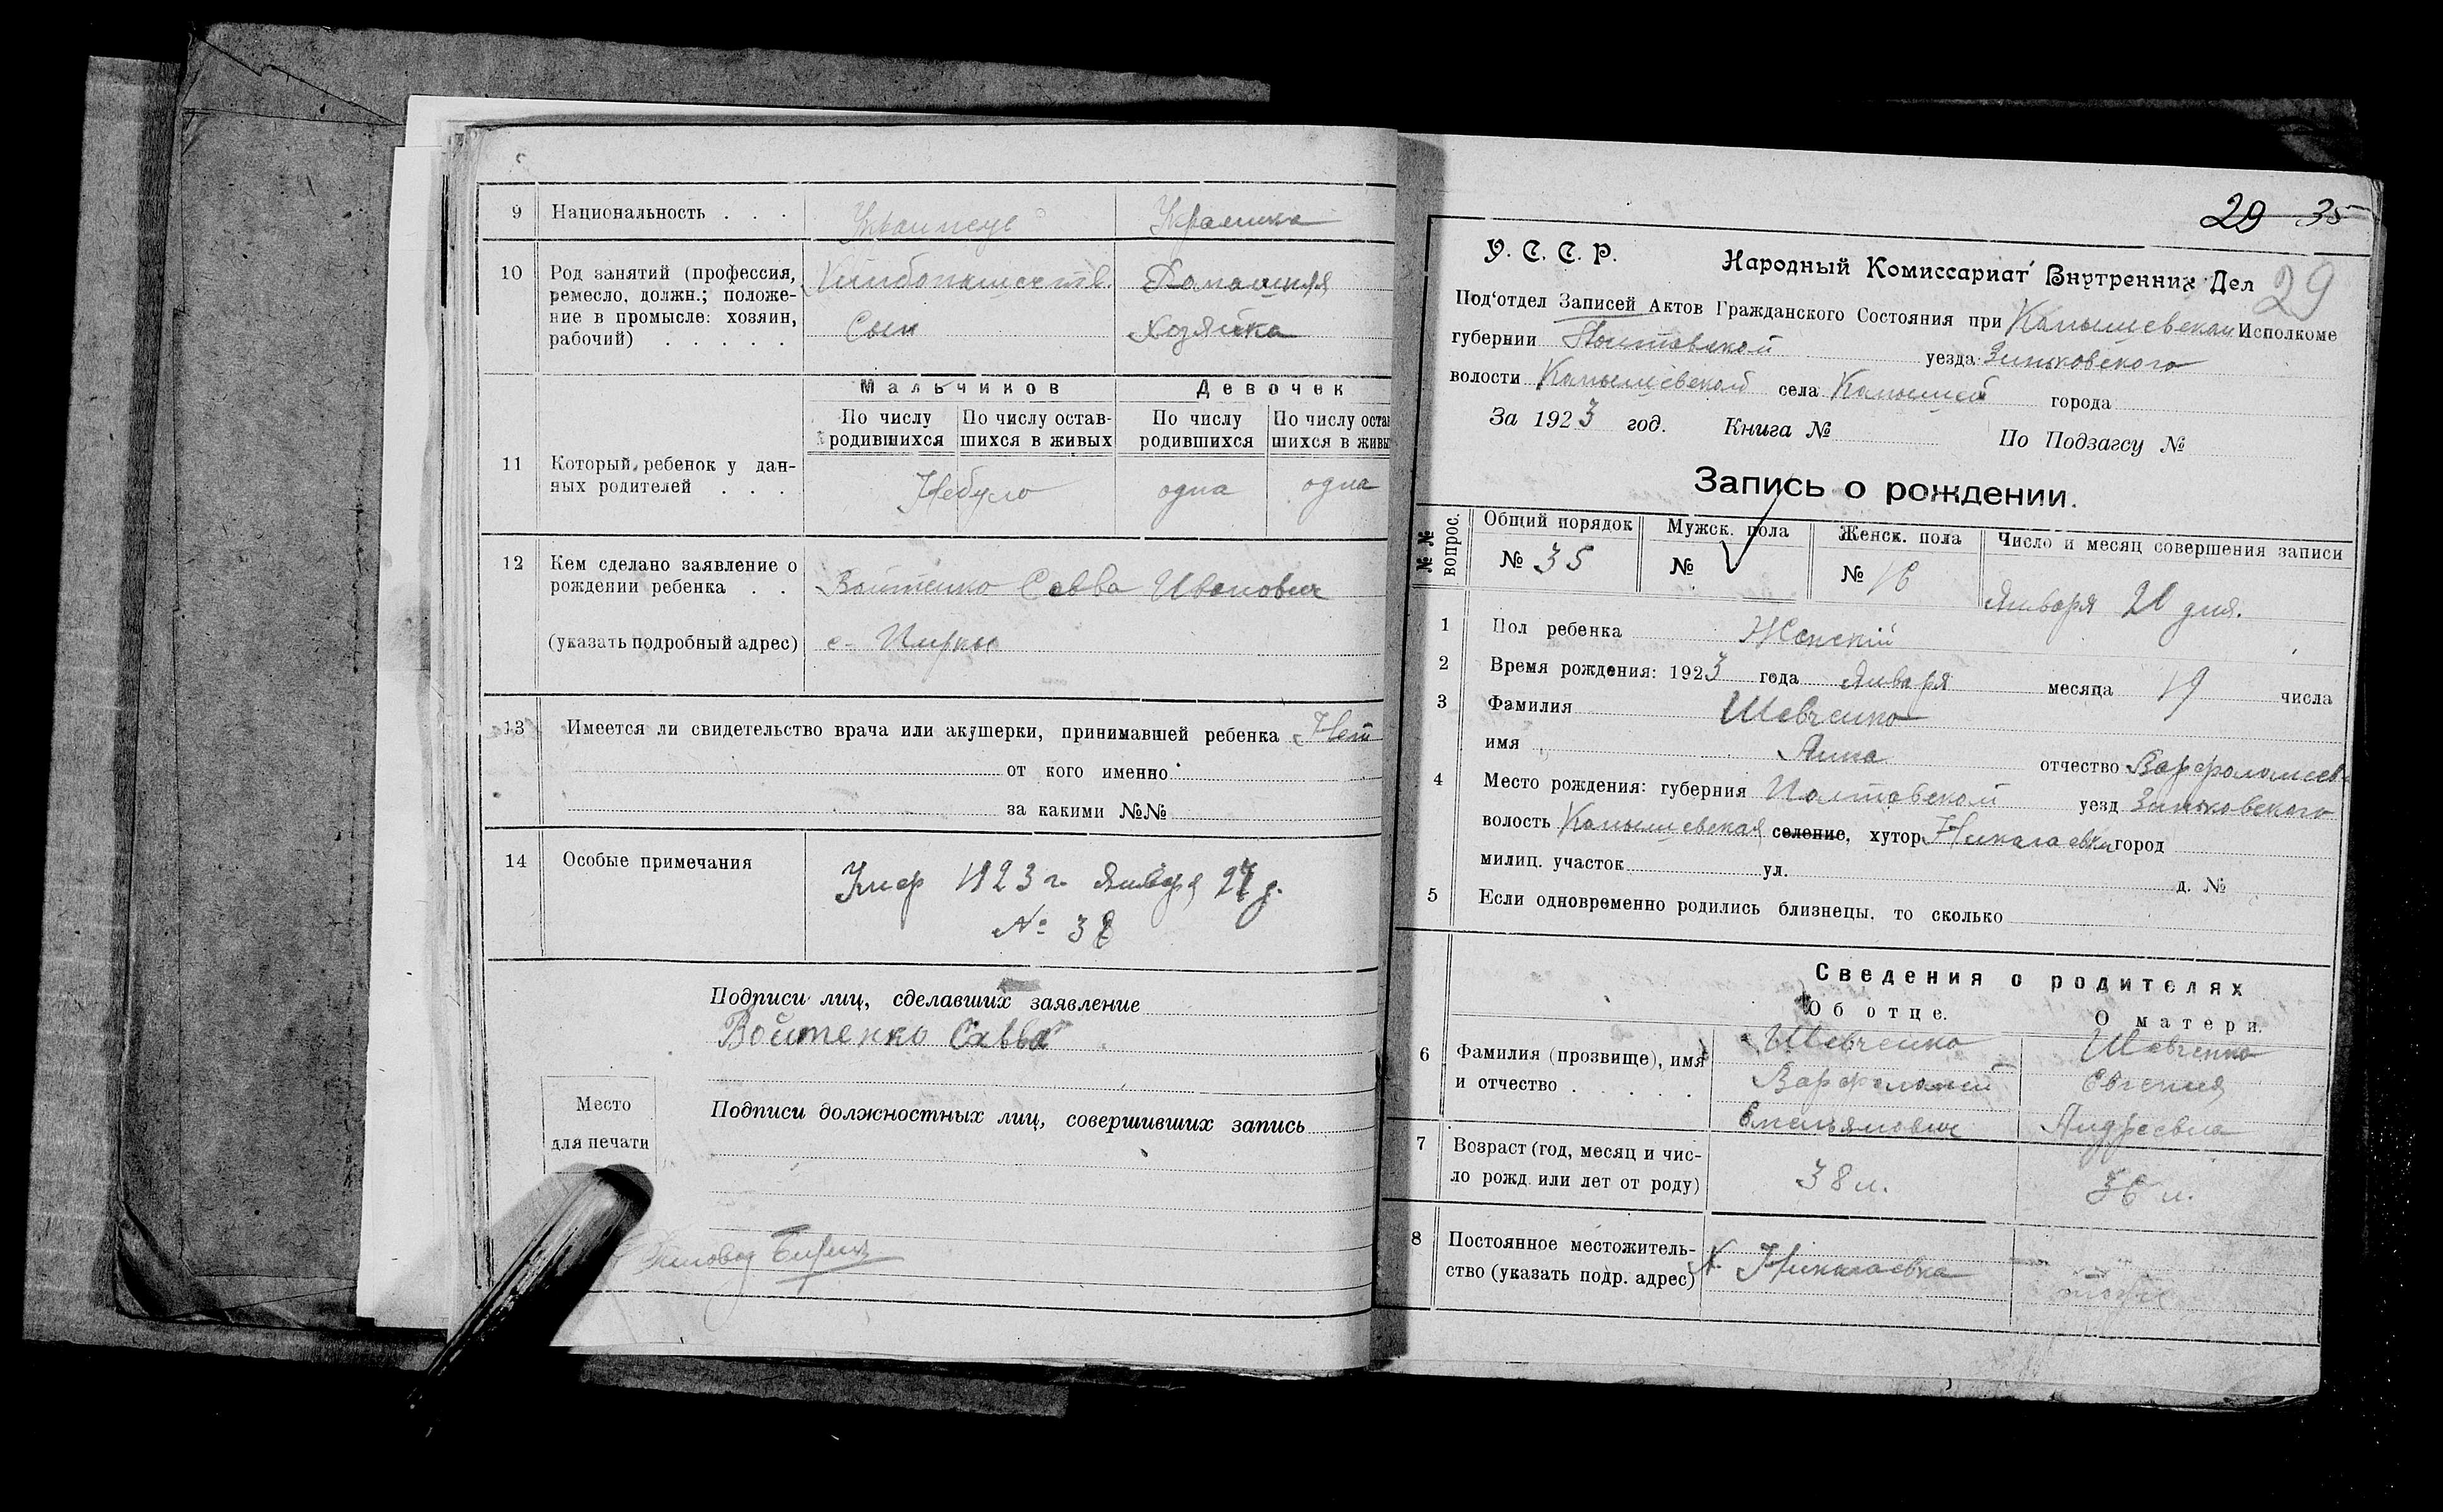 9 Национальность . . . Украинець Украинка
10 Род занятий (профессия, Хлибопашеств. Домашняя
ремесло, должн.; положе-
ние в промысле: хозяин, Сын хозяйка
рабочий) . . . . .
Мальчиков Девочек
По числу По числу остав- По числу По числу оста
родившихся шихся в живых родившихся шихся в живы
11 Который ребенок у дан- Небуло одна одна
ных родителей . . .
12 Кем сделано заявление о
рождении ребенка . . Войтенко Савва Иванович
(указать подробный адрес) с.
13 Имеется ли свидетельство врача или акушерки, принимавшей ребенка Нет
от кого именно
за какими №№
14 Особые примечания Умер 1923 г. Января 27 д.
№ 38
Подписи лиц, сделавших заявление
Войтенко Савва
Место
для печати
Подписи должностных лиц, совершивших запись
29 35
29
У. С. С. Р. Народный Комиссариат Внутренних Дел
Под'отдел Записей Актов Гражданского Состояния при Камышевском Исполкоме
губернии Полтавской уезда Зиньковского
волости Камышевской села Камышей города
За 1923 год. Книга № По Подзагсу №
Запись о рождении.
№ № вопрос. Общий порядок Мужск. пола Женск. пола Число и месяц совершения записи
№ 35 № № 16 Января 20 дня.
1 Пол ребенка Женскій
2 Время рождения: 1923 года Января месяца 19 числа
3 Фамилия Шевченко
имя Анна отчество Варфоломеев
4 Место рождения: губерния Полтавской уезд Зиньковского
волость Камышевская селение, хутор Николаевка город
милиц. участок ул. д. №
5 Если одновременно родились близнецы, то сколько
Сведения о родителях
Об отце. О матери.
6 Фамилия (прозвище), имя Шевченко Шевченко
и отчество . . . . . Варфоломей Евгения
Емельянович Андреевна
7 Возраст (год, месяц и чис-
ло рожд. или лет от роду) 38 л. 36 л.
8 Постоянное местожитель-
ство (указать подр. адрес) х. Николаевка тоже